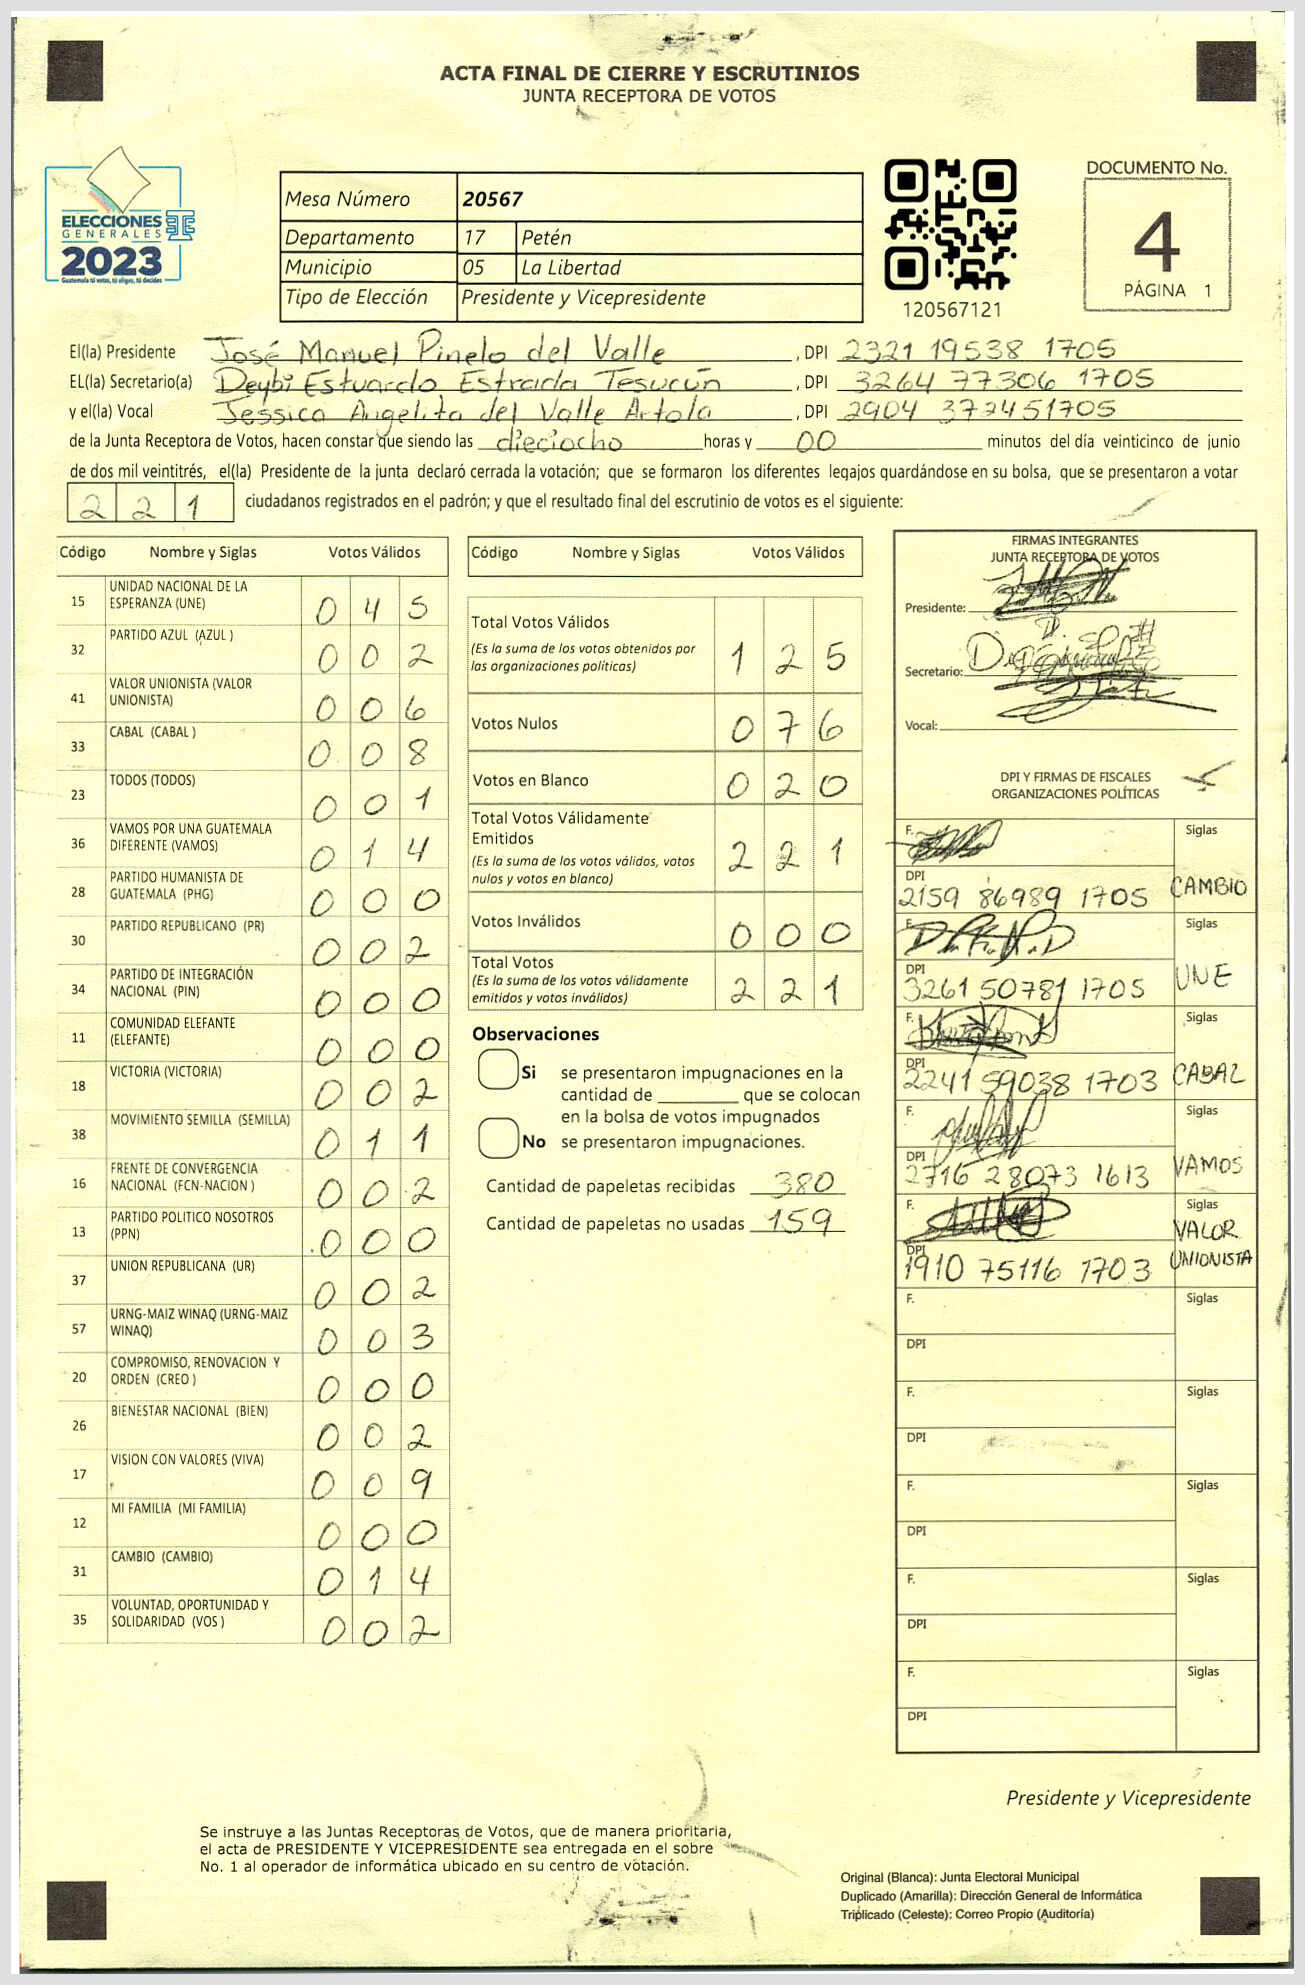 ACTA FINAL DE CIERRE Y ESCRUTINIOS
JUNTA RECEPTORA DE VOTOS
ELECCIONES
GENERALES
2023
Guatemala tú votas, tú eliges, tú decides
Mesa Número 20567
Departamento 17 Petén
Municipio 05 La Libertad
Tipo de Elección Presidente y Vicepresidente
120567121
DOCUMENTO No.
4
PÁGINA 1
El(la) Presidente José Manuel Pinelo del Valle, DPI 2321 19538 1705
EL(la) Secretario(a) Deybi Estuardo Estrada Tesucún, DPI 3264 77306 1705
y el(la) Vocal Jessica Angelita del Valle Artola, DPI 2904 372451705
de la Junta Receptora de Votos, hacen constar que siendo las dieciocho horas y 00 minutos del día veinticinco de junio
de dos mil veintitrés, el(la) Presidente de la junta declaró cerrada la votación; que se formaron los diferentes legajos quardándose en su bolsa, que se presentaron a votar
221 ciudadanos registrados en el padrón; y que el resultado final del escrutinio de votos es el siguiente:
Código Nombre y Siglas Votos Válidos
15 UNIDAD NACIONAL DE LA ESPERANZA (UNE) 0 4 5
32 PARTIDO AZUL (AZUL ) 0 0 2
41 VALOR UNIONISTA (VALOR UNIONISTA) 0 0 6
33 CABAL (CABAL ) 0 0 8
23 TODOS (TODOS) 0 0 1
36 VAMOS POR UNA GUATEMALA DIFERENTE (VAMOS) 0 1 4
28 PARTIDO HUMANISTA DE GUATEMALA (PHG) 0 0 0
30 PARTIDO REPUBLICANO (PR) 0 0 2
34 PARTIDO DE INTEGRACIÓN NACIONAL (PIN) 0 0 0
11 COMUNIDAD ELEFANTE (ELEFANTE) 0 0 0
18 VICTORIA (VICTORIA) 0 0 2
38 MOVIMIENTO SEMILLA (SEMILLA) 0 1 1
16 FRENTE DE CONVERGENCIA NACIONAL (FCN-NACION ) 0 0 2
13 PARTIDO POLITICO NOSOTROS (PPN) 0 0 0
37 UNION REPUBLICANA (UR) 0 0 2
57 URNG-MAIZ WINAQ (URNG-MAIZ WINAQ) 0 0 3
20 COMPROMISO, RENOVACION Y ORDEN (CREO ) 0 0 0
26 BIENESTAR NACIONAL (BIEN) 0 0 2
17 VISION CON VALORES (VIVA) 0 0 9
12 MI FAMILIA (MI FAMILIA) 0 0 0
31 CAMBIO (CAMBIO) 0 1 4
35 VOLUNTAD, OPORTUNIDAD Y SOLIDARIDAD (VOS ) 0 0 2
Código Nombre y Siglas Votos Válidos
Total Votos Válidos
(Es la suma de los votos obtenidos por
las organizaciones políticas) 1 2 5
Votos Nulos 0 7 6
Votos en Blanco 0 2 0
Total Votos Válidamente
Emitidos
(Es la suma de los votos válidos, votos
nulos y votos en blanco) 2 2 1
Votos Inválidos 0 0 0
Total Votos
(Es la suma de los votos válidamente
emitidos y votos inválidos) 2 2 1
Observaciones
Si se presentaron impugnaciones en la
cantidad de ________ que se colocan
en la bolsa de votos impugnados
No se presentaron impugnaciones.
Cantidad de papeletas recibidas 380
Cantidad de papeletas no usadas 159
FIRMAS INTEGRANTES
JUNTA RECEPTORA DE VOTOS
Presidente:
Secretario:
Vocal:
DPI Y FIRMAS DE FISCALES
ORGANIZACIONES POLÍTICAS
F. Siglas
DPI
2159 86989 1705 CAMBIO
F. Siglas
DPI
3261 50781 1705 UNE
F. Siglas
DPI
2241 59038 1703 CABAL
F. Siglas
DPI
2716 28073 1613 VAMOS
F. Siglas
VALOR
DPI
1910 75116 1703 UNIONISTA
F. Siglas
DPI
F. Siglas
DPI
F. Siglas
DPI
F. Siglas
DPI
F. Siglas
DPI
Presidente y Vicepresidente
Se instruye a las Juntas Receptoras de Votos, que de manera prioritaria,
el acta de PRESIDENTE Y VICEPRESIDENTE sea entregada en el sobre
No. 1 al operador de informática ubicado en su centro de votación.
Original (Blanca): Junta Electoral Municipal
Duplicado (Amarilla): Dirección General de Informática
Triplicado (Celeste): Correo Propio (Auditoría)